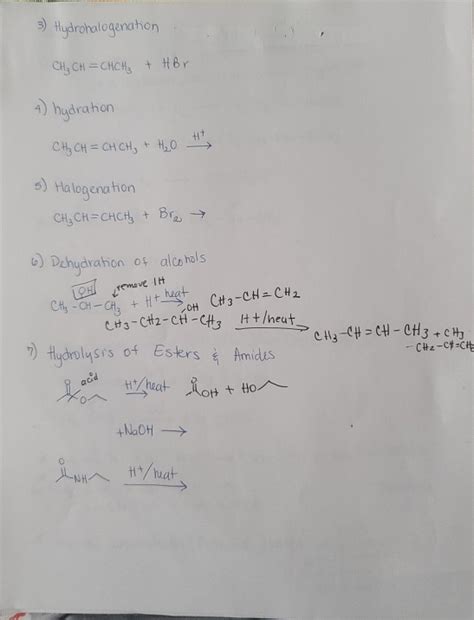 3) Hydrohalogenation
CH3CH=CHCH3 + HBr
4) hydration
CH3CH=CHCH3 + H2O H+ →
5) Halogenation
CH3CH=CHCH3 + Br2 →
6) Dehydration of alcohols
OH remove 1H
CH3-CH-CH3 + H+ heat → CH3-CH=CH2
OH
CH3-CH2-CH-CH3 H+/heat → CH3-CH=CH-CH3 + CH3
-CH2-CH=CH2
7) Hydrolysis of Esters & Amides
O acid
O H+/heat → O OH + HO
+NaOH →
O
NH H+/heat →